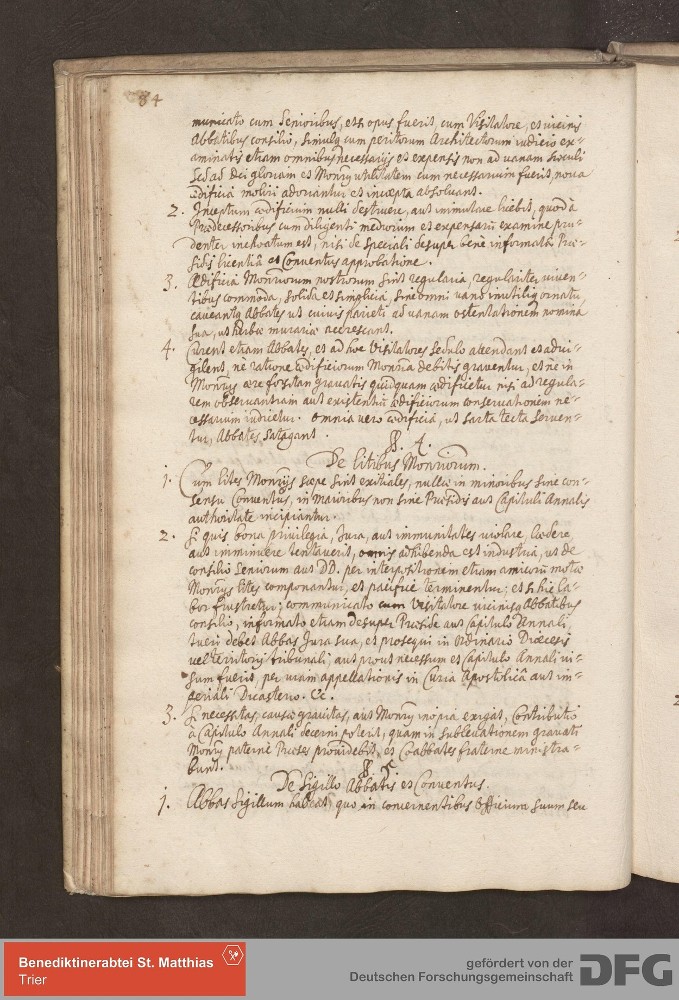 84
municato cum Senioribus, et si opus fuerit, cum Visitatore, et vicinis
Abbatibus consilio, simulq cum peritorum Architectorum iudicio ex=
aminatis etiam omnibus necessarijs et expensis non ad vanam sæculi
sed ad Dei gloriam et Monrij utilitatem cum necessarium fuerit, nova
ædificia moliri adoriantur et incæpta absolvant.
2. Inceptum ædificium nulli destruere, aut immutare licebit, quod à
Prædecessoribus cum diligenti mediorum et expensarũ examine pru=
denter inchoatum est, nisi de speciali desuper bene informati Præ=
sidis licentiâ et Conventus approbatione.
3. Ædificia Monriorum nostrorum sint regularia, regulariter viven=
tibus commoda, solida et simplicia, sine omni vano inutiliq ornatu,
caveantq Abbates ut cuivis parieti ad vanam ostentationem nomina
sua, ut herbæ murariæ accrescant.
4. Curent etiam Abbates, et ad hoc Visitatores sedulo attendant et advi=
gilent, ne ratione ædificiorum Monria debitis graventur, et ne in
Monrijs ære forsitan gravatis quidquam ædificetur nisi ad regula=
rem observantiam aut existentiũ ædificiorum conservationem ne=
cessarium iudicetur. omnia vero ædificia, ut sarta tecta serven=
tur, Abbates satagant.
§. 4.
De litibus Monriorum.
1. Cum lites Monrijs sæpe sint exitiales, nullæ in minoribus sine con=
sensu Conventus, in maioribus non sine Præsidis aut Capituli Annalis
authoritate incipiantur.
2. Si quis bona privilegia, Jura, aut immunitates violare, lædere
aut imminuere tentaverit, omnis adhibenda est industria, ut de
consilio Seniorum aut DD. per interpositionem etiam amicorũ motæ
Monrijs lites componantur, et pacifice terminentur; et si hic la=
bor frustretur; communicato cum Visitatore vicinisq Abbatibus
consilio, informato etiam desuper Præside aut Capitulo Annali,
tueri debet Abbas Jura sua, et prosequi in ordinario Diœcesis
vel territorij tribunali; aut prout necessum et Capitulo Annali vi=
sum fuerit, per viam appellationis in Curia Apostolicâ aut im=
periali Dicasterio. &c.
3. Si necessitas, causæ gravitas, aut Monrij inopia exigat, Contributio
à Capitulo Annali decerni poterit, quam in sublevationem gravati
Monrij paterne Præses providebit, et Coabbates fraterne ministra=
bunt.
§. 5.
De Sigillo Abbatis et Conventus.
1. Abbas Sigillum habeat, quo in concernentibus Officium suum seu
Benediktinerabtei St. Matthias
Trier
gefördert von der
Deutschen Forschungsgemeinschaft
DFG